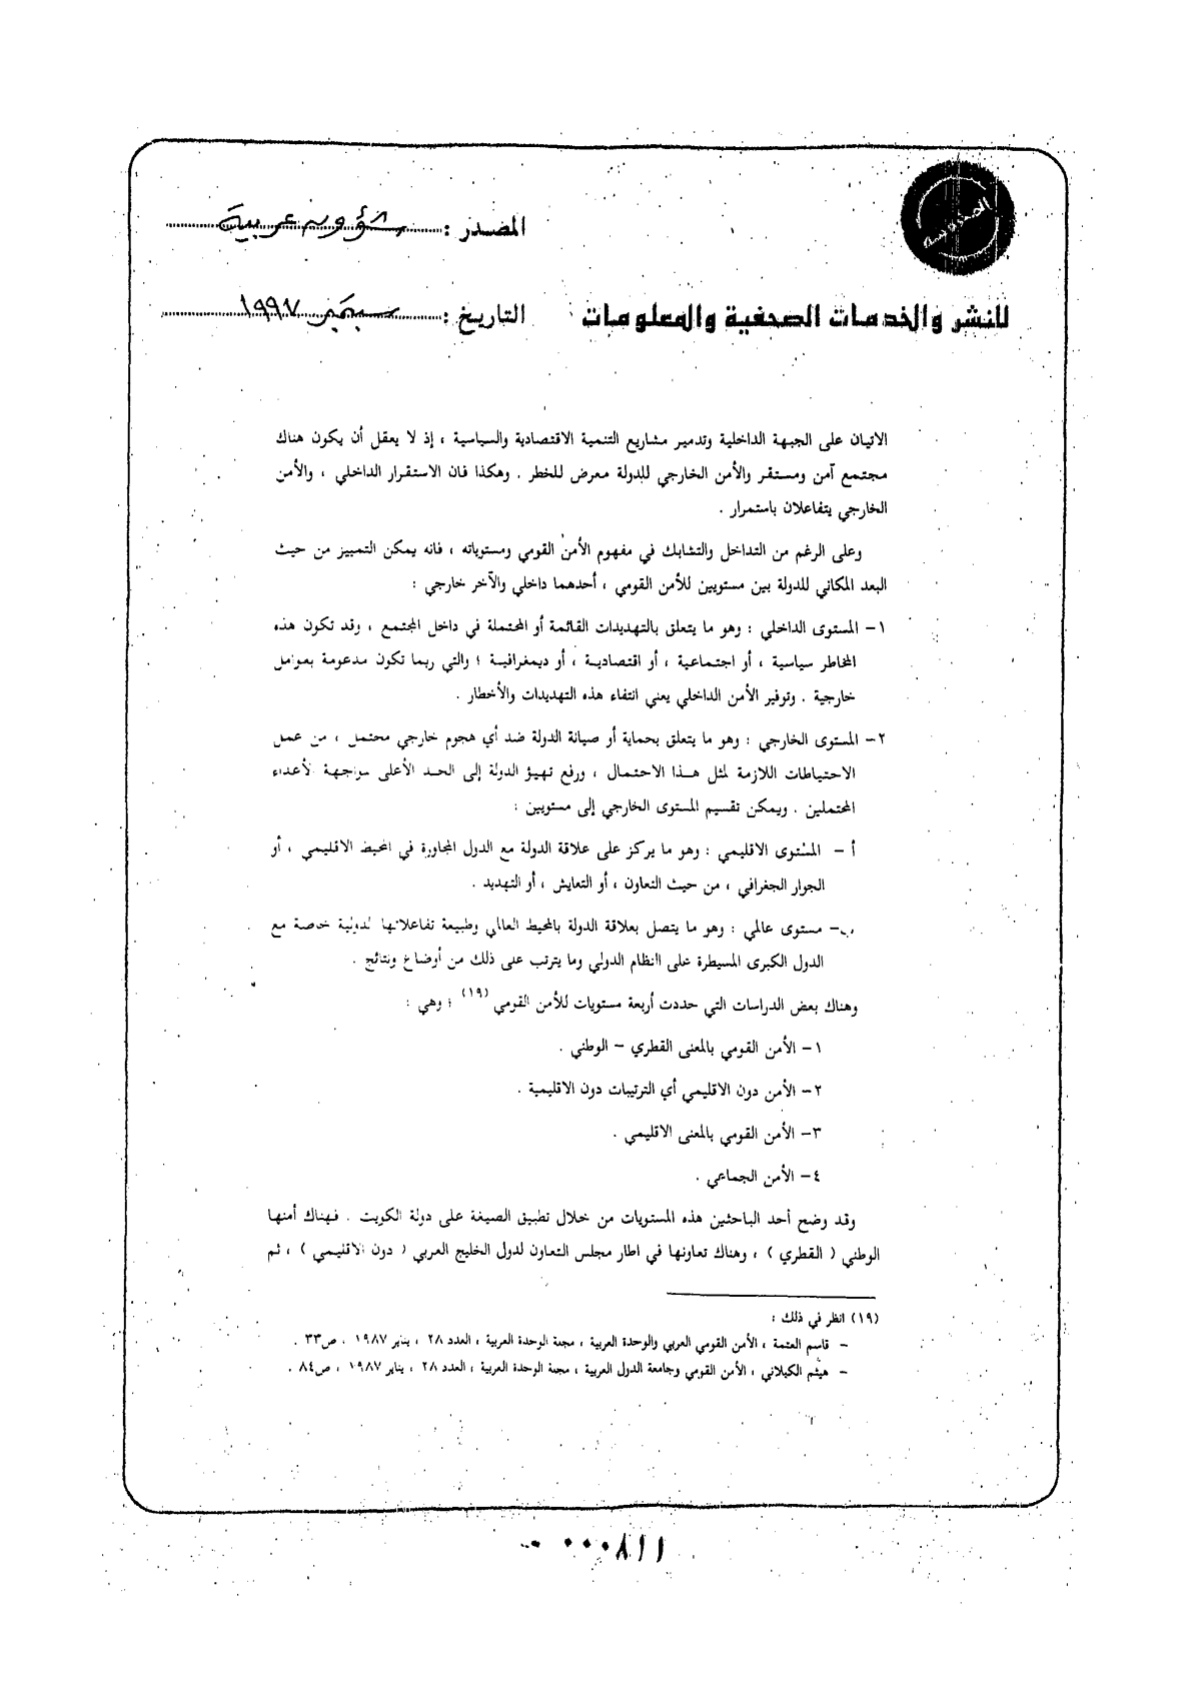 المصدر : شؤون عربية
للنشر والخدمات الصحفية والمعلومات
التاريخ : سبتمبر ١٩٩٧
الاتيان على الجبهة الداخلية وتدمير مشاريع التنمية الاقتصادية والسياسية ، إذ لا يعقل أن يكون هناك
مجتمع آمن ومستقر والأمن الخارجي للدولة معرض للخطر . وهكذا فان الاستقرار الداخلي ، والأمن
الخارجي يتفاعلان باستمرار .
وعلى الرغم من التداخل والتشابك في مفهوم الأمن القومي ومستوياته ، فانه يمكن التمييز من حيث
البعد المكاني للدولة بين مستويين للأمن القومي ، أحدهما داخلي والآخر خارجي :
١– المستوى الداخلي : وهو ما يتعلق بالتهديدات القائمة أو المحتملة في داخل المجتمع ، وقد تكون هذه
المخاطر سياسية ، أو اجتماعية ، أو اقتصادية ، أو ديمغرافية ؛ والتي ربما تكون مدعومة بعوامل
خارجية . وتوفير الأمن الداخلي يعني انتفاء هذه التهديدات والأخطار .
٢– المستوى الخارجي : وهو ما يتعلق بحماية أو صيانة الدولة ضد أي هجوم خارجي محتمل ، من عمل
الاحتياطات اللازمة لمثل هذا الاحتمال ، ورفع تهيؤ الدولة إلى الحد الأعلى لمواجهة الأعداء
المحتملين . ويمكن تقسيم المستوى الخارجي إلى مستويين :
أ – المستوى الاقليمي : وهو ما يركز على علاقة الدولة مع الدول المجاورة في المحيط الاقليمي ، أو
الجوار الجغرافي ، من حيث التعاون ، أو التعايش ، أو التهديد .
ب– مستوى عالمي : وهو ما يتصل بعلاقة الدولة بالمحيط العالمي وطبيعة تفاعلاتها الدولية خاصة مع
الدول الكبرى المسيطرة على النظام الدولي وما يترتب على ذلك من أوضاع ونتائج .
وهناك بعض الدراسات التي حددت أربعة مستويات للأمن القومي (١٩) ؛ وهي :
١– الأمن القومي بالمعنى القطري – الوطني .
٢– الأمن دون الاقليمي أي الترتيبات دون الاقليمية .
٣– الأمن القومي بالمعنى الاقليمي .
٤– الأمن الجماعي .
وقد وضح أحد الباحثين هذه المستويات من خلال تطبيق الصيغة على دولة الكويت . فهناك أمنها
الوطني ( القطري ) ، وهناك تعاونها في اطار مجلس التعاون لدول الخليج العربي ( دون الاقليمي ) ، ثم
(١٩) انظر في ذلك :
– قاسم العتمة ، الأمن القومي العربي والوحدة العربية ، مجلة الوحدة العربية ، العدد ٢٨ ، يناير ١٩٨٧ ، ص٣٣ .
– هيثم الكيلاني ، الأمن القومي وجامعة الدول العربية ، مجلة الوحدة العربية ، العدد ٢٨ ، يناير ١٩٨٧ ، ص٨٤ .